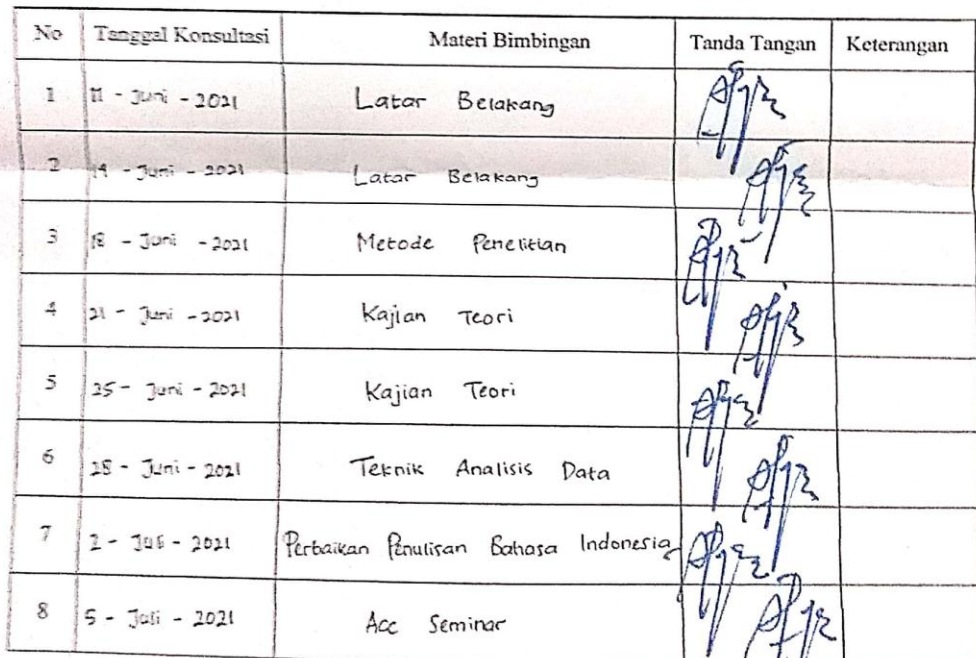 No Tanggal Konsultasi Materi Bimbingan Tanda Tangan Keterangan
1 11 - Juni - 2021 Latar Belakang
2 14 - Juni - 2021 Latar Belakang
3 18 - Juni - 2021 Metode Penelitian
4 21 - Juni - 2021 Kajian Teori
5 25 - Juni - 2021 Kajian Teori
6 28 - Juni - 2021 Teknik Analisis Data
7 2 - Juli - 2021 Perbaikan Penulisan Bahasa Indonesia
8 5 - Juli - 2021 Acc Seminar